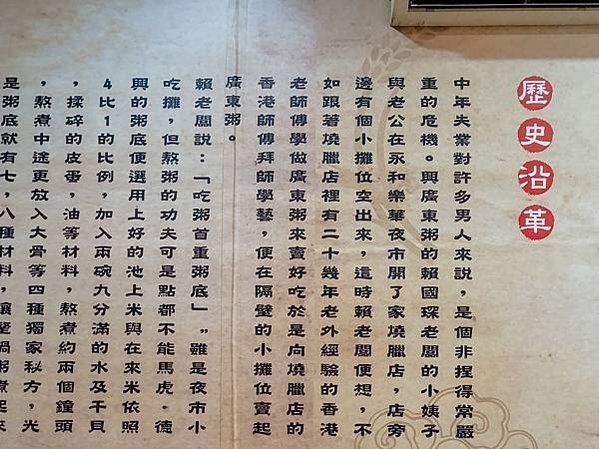 歷史沿革
中年失業對許多男人來說，是個非捏得常嚴
重的危機。興廣東粥的賴國琛老闆的小姨子
與老公在永和樂華夜市開了家燒臘店，店旁
邊有個小攤位空出來，這時賴老闆便想，不
如跟著燒臘店裡有二十幾年老外經驗的香港
老師傅學做廣東粥來賣好吃於是向燒臘店的
香港師傅拜師學藝，便在隔壁的小攤位賣起
廣東粥。
賴老闆說：「吃粥首重粥底」，雖是夜市小
吃攤，但熬粥的功夫可是點都不能馬虎。德
興的粥底便選用上好的池上米與在來米依照
4比1的比例，加入兩碗九分滿的水及干貝
，揉碎的皮蛋，油等材料，熬煮約兩個鐘頭
，熬煮中途更放入大骨等四種獨家秘方，光
是粥底就有七，八種材料，讓